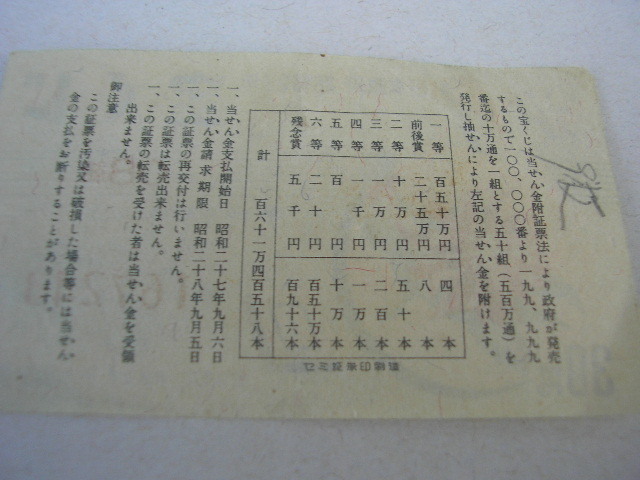 この宝くじは当せん金附証票法により政府が発売
するもので一〇〇、〇〇〇番より一九九、九九九
番迄の十万通を一組とする五十組（五百万通）を
発行し抽せんにより左記の当せん金を附けます。
一等 百五十万円 四本
前後賞 二十五万円 八本
二等 十万円 五十本
三等 一万円 二百本
四等 一千円 一万本
五等 百円 十万本
六等 二十円 百五十万本
残念賞 五千円 百九十六本
計 百六十一万四百五十八本
一、当せん金支払開始日 昭和二十七年九月六日
一、当せん金請求期限 昭和二十八年九月五日
一、この証票の再交付は行いません。
一、この証票は転売出来ません。
一、この証票の転売を受けた者は当せん金を受領
出来ません。
御注意
この証票を汚染又は破損した場合等には当せん
金の支払をお断りすることがあります。